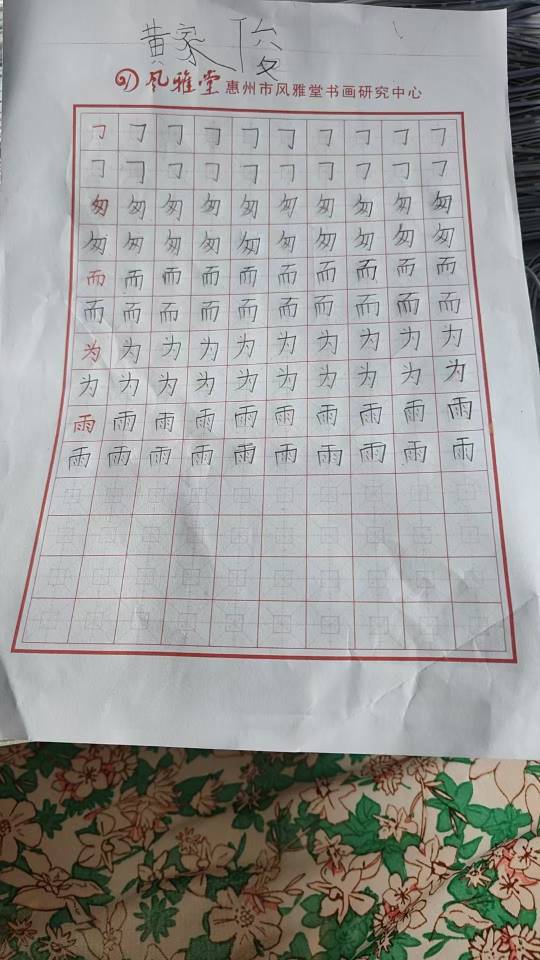 黄家俊
风雅堂 惠州市风雅堂书画研究中心
㇆ ㇆ ㇆ ㇆ ㇆ ㇆ ㇆ ㇆ ㇆ ㇆
㇆ ㇆ ㇆ ㇆ ㇆ ㇆ ㇆ ㇆ ㇆ ㇆
匆 匆 匆 匆 匆 匆 匆 匆 匆 匆
匆 匆 匆 匆 匆 匆 匆 匆 匆 匆
而 而 而 而 而 而 而 而 而 而
而 而 而 而 而 而 而 而 而 而
为 为 为 为 为 为 为 为 为 为
为 为 为 为 为 为 为 为 为 为
雨 雨 雨 雨 雨 雨 雨 雨 雨 雨
雨 雨 雨 雨 雨 雨 雨 雨 雨 雨